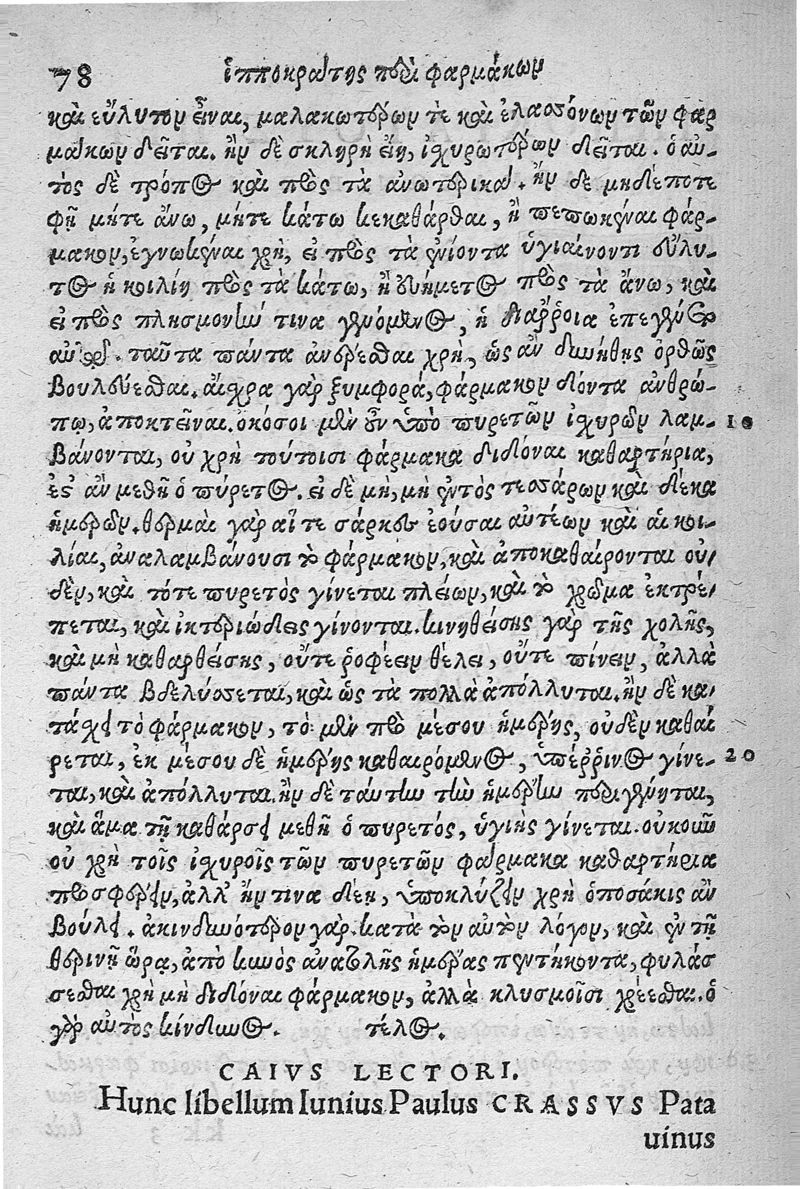 78 ἱπποκράτης περὶ φαρμάκων
καὶ εὔλυτον εἶναι, μαλακωτέρων τὲ καὶ ἐλασσόνων τῶν φαρ
μάκων δεῖται. ἢν δὲ σκληρὴ ἔῃ, ἰχυρωτέρων δεῖται. ὁ αὐ-
τὸς δὲ τρόπος καὶ πρὸς τὰ ἀνωτερικά. ἢν δὲ μηδέποτε
φῇ μήτε ἄνω, μήτε κάτω κεκαθάρθαι, ἢ πεπωκέναι φάρ-
μακον, ἐγνωκέναι χρὴ, εἰ πρὸς τὰ ἐνίοντα ὑγιαίνοντι εὔλυ-
τος ἡ κοιλίη πρὸς τὰ κάτω, ἢ εὐήμετος πρὸς τὰ ἄνω, καὶ
εἰ πρὸς πλησμονήν τινα γενόμενος, ἡ διάῤῥοια ἐπεγένετο
αὐτῷ. ταῦτα πάντα ἀνερέσθαι χρὴ, ὡς ἂν δυνήθῃς ὀρθῶς
βουλεύεσθαι. αἰσχρὰ γὰρ ξυμφορά, φάρμακον διόντα ἀνθρώ-
πῳ, ἀποκτεῖναι. ὁκόσοι μὲν οὖν ὑπὸ πυρετῶν ἰχυρῶν λαμ- 10
βάνονται, οὐ χρὴ τούτοισι φάρμακα διδόναι καθαρτήρια,
ἔς᾽ ἂν μεθῇ ὁ πύρετος. εἰ δὲ μὴ, μὴ ἐντὸς τεσσάρων καὶ δέκα
ἡμερῶν. θερμαὶ γὰρ αἵ τε σάρκες ἐοῦσαι αὐτέων καὶ αἱ κοι-
λίαι, ἀναλαμβάνουσι τὸ φάρμακον, καὶ ἀποκαθαίρονται οὐ-
δὲν, καὶ τότε πυρετὸς γίνεται πλέων, καὶ τὸ χρῶμα ἐκτρέ-
πεται, καὶ ἰκτεριώδεις γίνονται. κινηθείσης γὰρ τῆς χολῆς,
καὶ μὴ καθαρθείσης, οὔτε ῥοφέειν θέλει, οὔτε πίνειν, ἀλλὰ
πάντα βδελύσσεται, καὶ ὡς τὰ πολλὰ ἀπόλλυται. ἢν δὲ κα-
τάχει τὸ φάρμακον, τὸ μὲν πρὸ μέσου ἡμέρης, οὐδὲν καθαί
ρεται, ἐκ μέσου δὲ ἡμέρης καθαιρόμενος, ὑπέρῤῥινος γίνε- 20
ται, καὶ ἀπόλλυται. ἢν δὲ ταύτην τὴν ἡμέρην περιγένηται,
καὶ ἅμα τῇ καθάρσει μεθῇ ὁ πυρετός, ὑγιὴς γίνεται. οὐκοῦν
οὐ χρὴ τοῖς ἰχυροῖς τῶν πυρετῶν φάρμακα καθαρτήρια
προσφέρειν, ἀλλ᾽ ἤν τινα δέῃ, ὑποκλύζειν χρὴ ὁποσάκις ἂν
βούλει. ἀκινδυνότερον γάρ. κατὰ τὸν αὐτὸν λόγον, καὶ ἐν τῇ
θερινῇ ὥρᾳ, ἀπὸ κυνὸς ἀναβολῆς ἡμέρας πεντήκοντα, φυλάσ
σεσθαι χρὴ μὴ διδόναι φάρμακον, ἀλλὰ κλυσμοῖσι χρέεσθαι. ὁ
γὰρ αὐτὸς κίνδυνος. τέλος.
CAIVS LECTORI.
Hunc libellum Iunius Paulus CRASSVS Pata
uinus